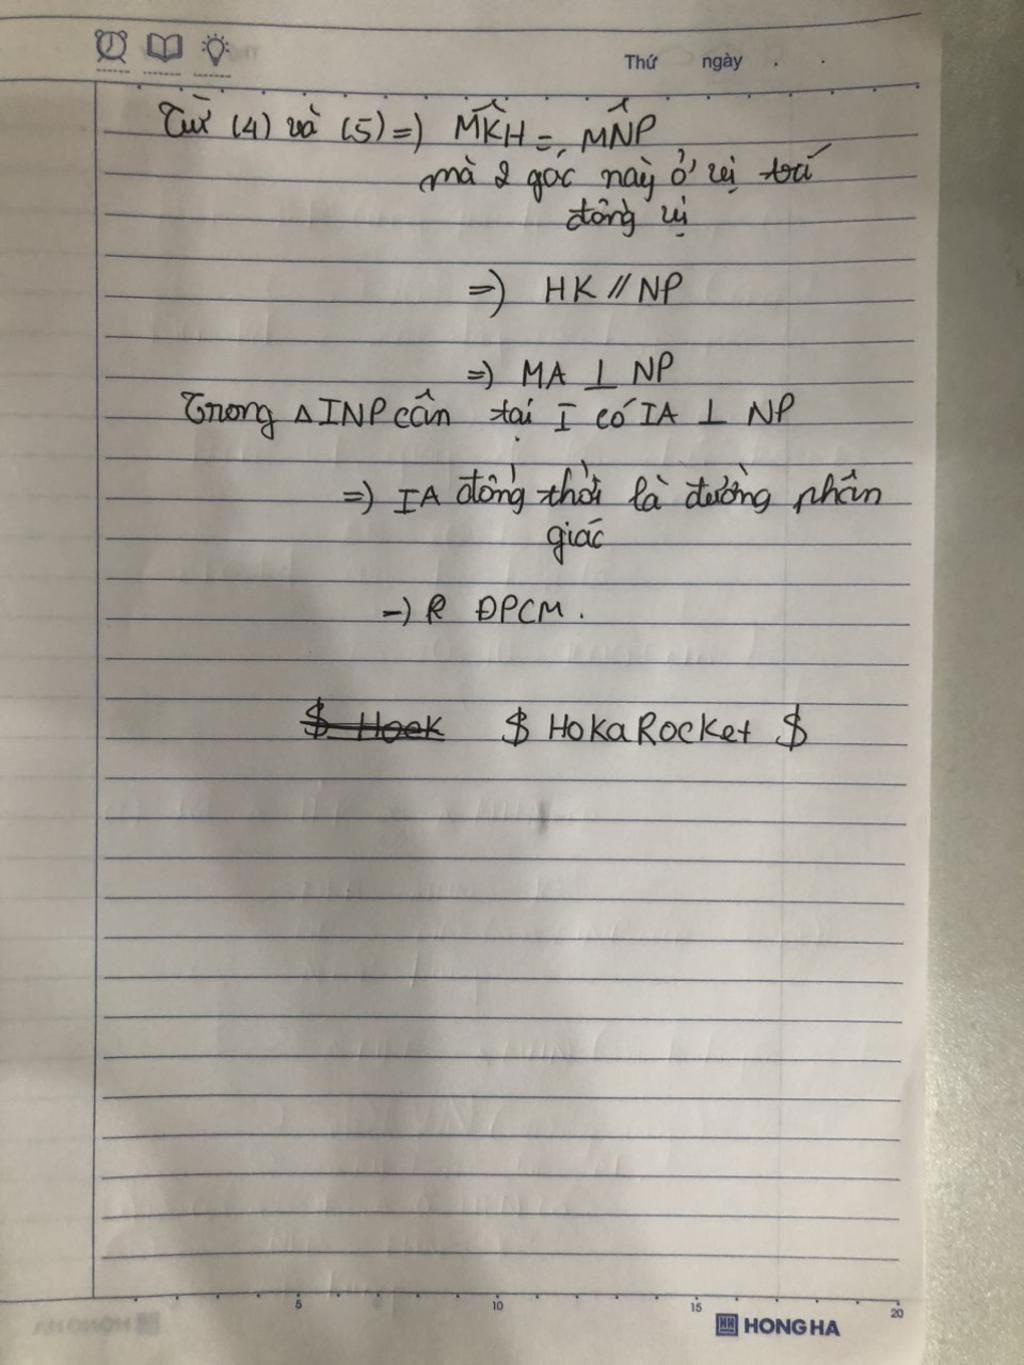 Thứ ngày . .
Từ (4) và (5) =) MK̂H = MN̂P
mà 2 góc này ở vị trí
đồng vị
=) HK // NP
=) MA ⊥ NP
Trong △INP cân tại I có IA ⊥ NP
=) IA đồng thời là đường phân
giác
-) R ĐPCM.
$ Hoek $ HoKaRocket $
5 10 15 20
HONG HA